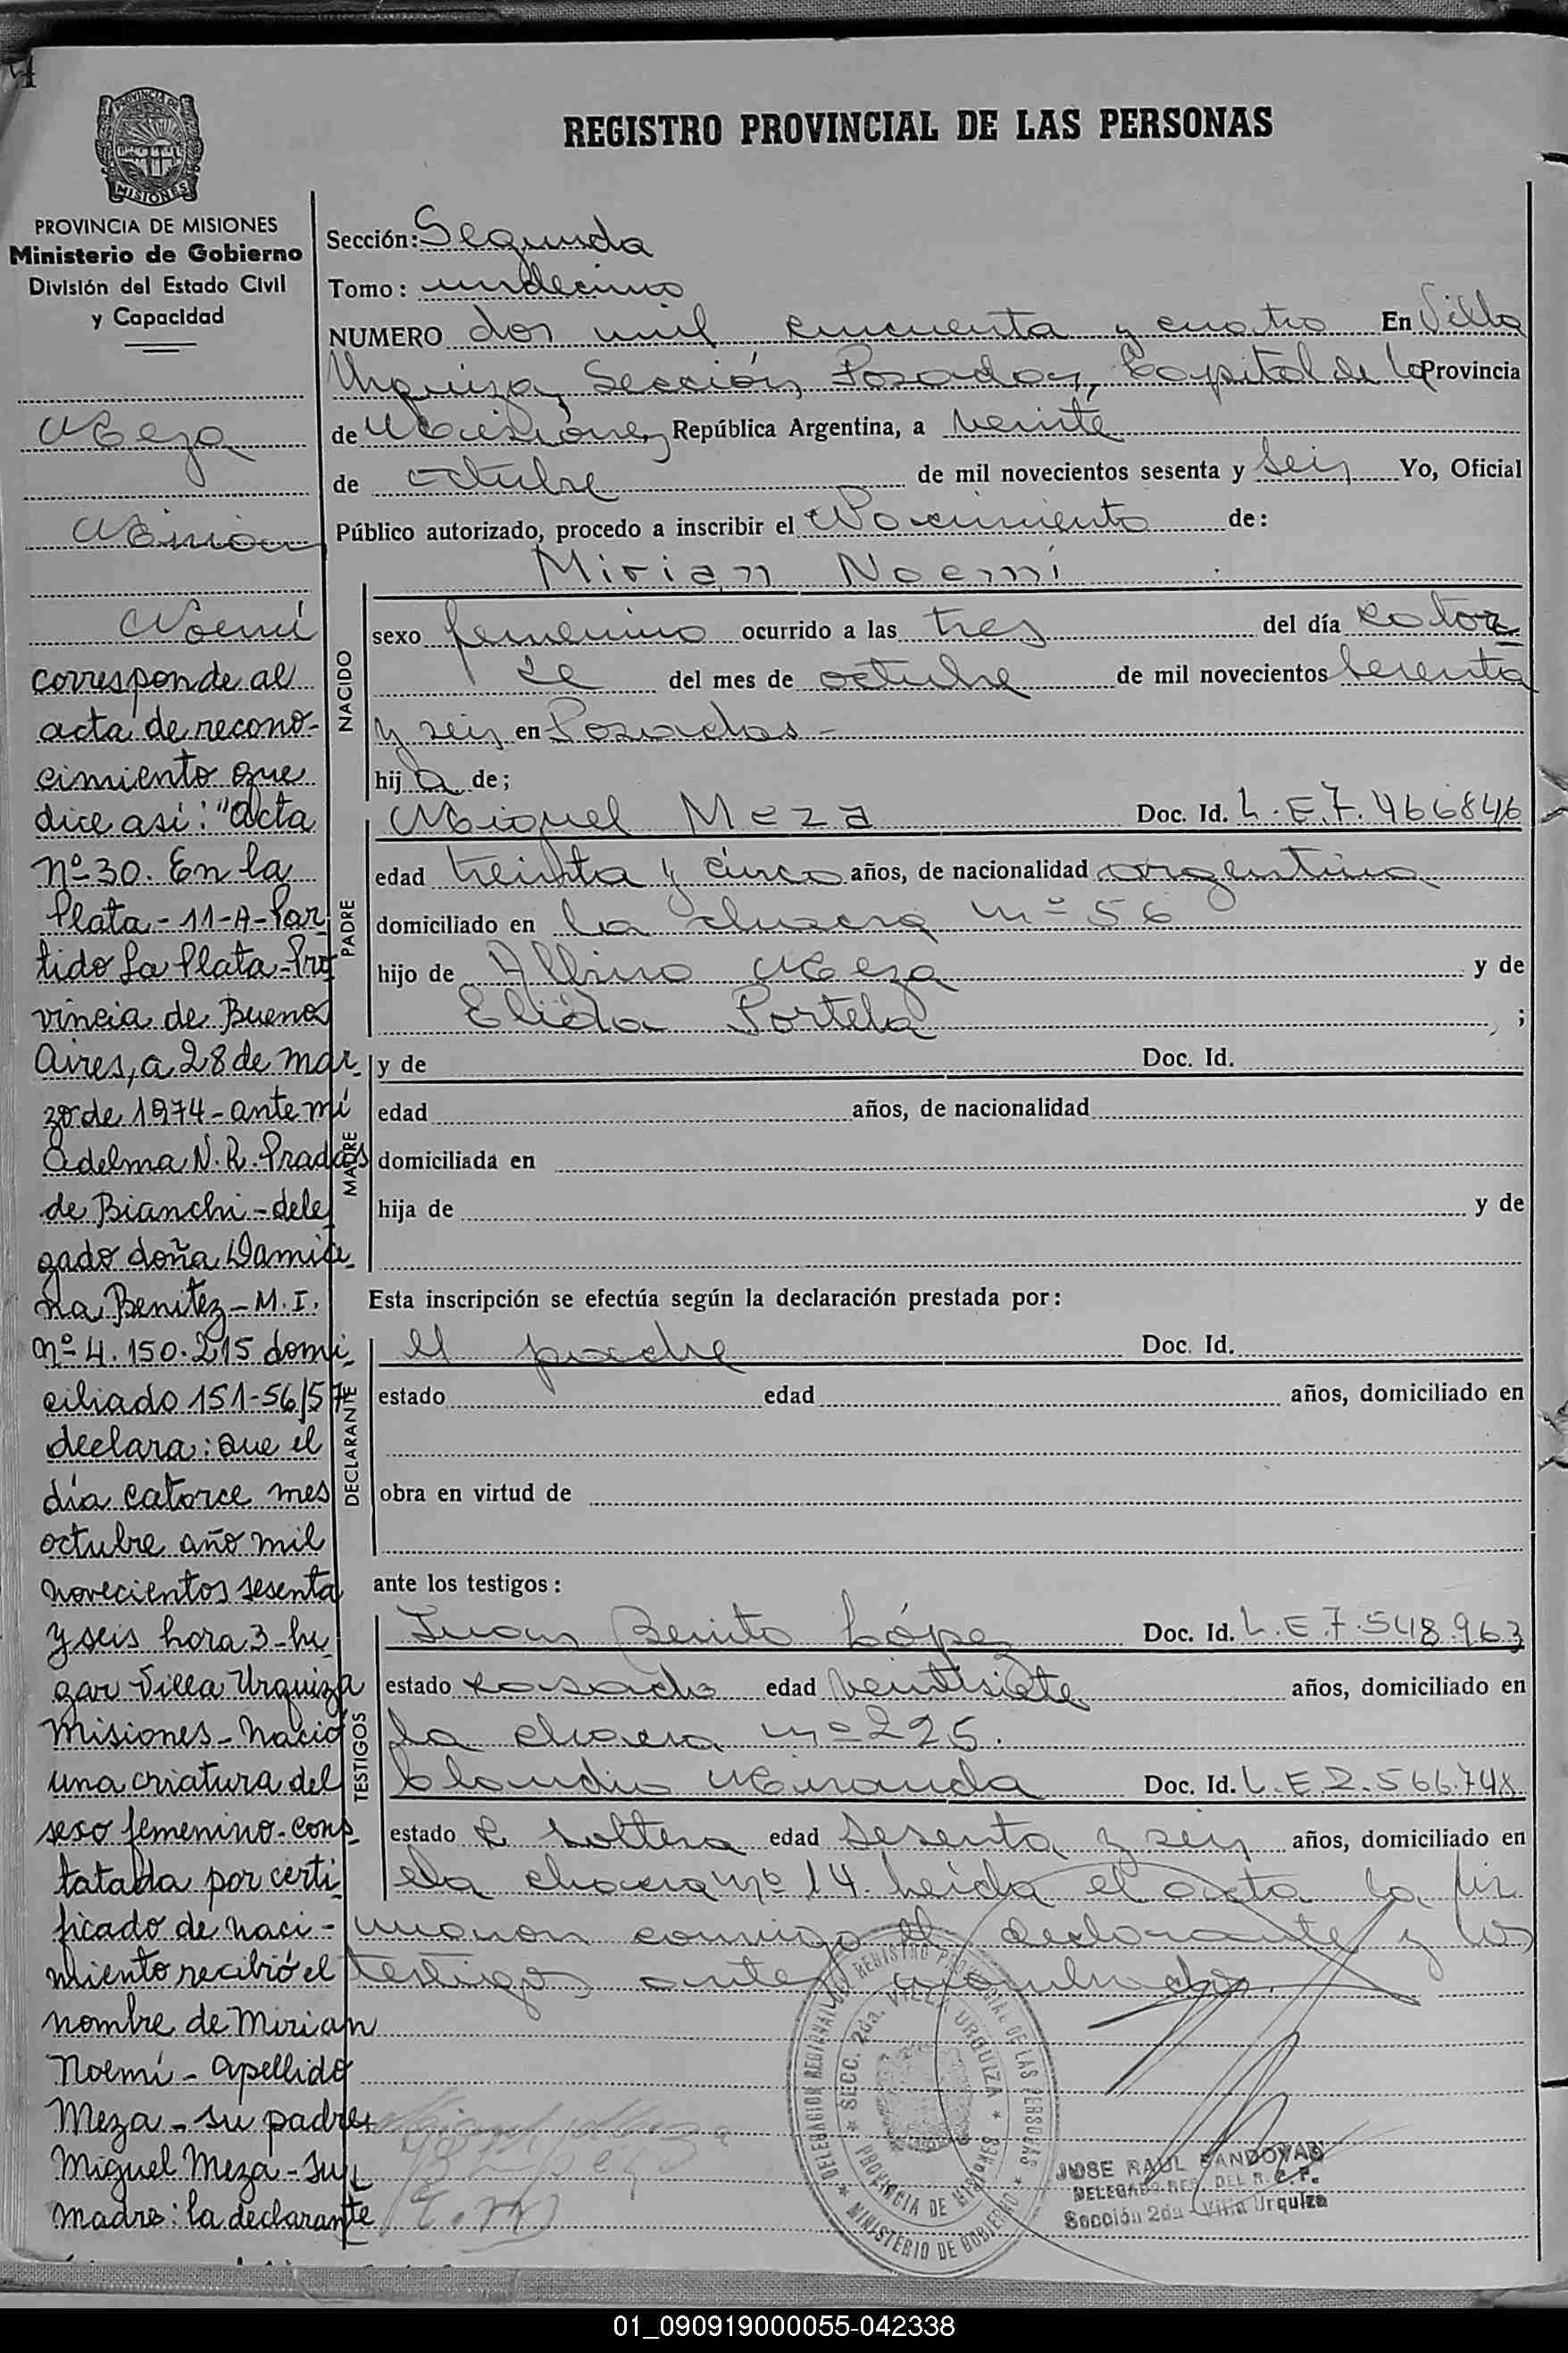 REGISTRO PROVINCIAL DE LAS PERSONAS
PROVINCIA DE MISIONES
MISIONES
PROVINCIA DE MISIONES
Ministerio de Gobierno
División del Estado Civil
y Capacidad
Meza
Mirian
Noemí
corresponde al
acta de recono-
cimiento que
dice asi: "acta
Nº 30. En la
Plata - 11-A - Par
tido La Plata - Pro
vincia de Buenos
Aires, a 28 de mar
zo de 1974 - ante mí
Adelma N. R. Prados
de Bianchi - dele
gado doña Damia
na Benitez - M. I.
Nº 4.150.215 domi
ciliado 151-56/57
declara: que el
día catorce mes
octubre año mil
novecientos sesenta
y seis hora 3 - lu
gar Villa Urquiza
Misiones - Nació
una criatura del
sexo femenino - cons
tatada por certi
ficado de naci-
miento recibió el
nombre de Mirian
Noemí - apellido
Meza - su padre
Miguel Meza - Su
madre: la declarante
Sección: Segunda
Tomo: undecimo
NUMERO dos mil cincuenta y cuatro En Villa
Urquiza, Sección, Posadas, Capital de la Provincia
de Misiones, República Argentina, a veinte
de octubre de mil novecientos sesenta y seis Yo, Oficial
Público autorizado, procedo a inscribir el Nacimiento de:
Mirian Noemí
NACIDO
sexo femenino ocurrido a las tres del día cator
ce del mes de octubre de mil novecientos sesenta
y seis en Posadas -
hija de;
PADRE
Miguel Meza Doc. Id. L.E.7.466846
edad treinta y cinco años, de nacionalidad argentina
domiciliado en la chacra nº 56
hijo de Albino Meza y de
Elida Portela ;
MADRE
y de Doc. Id.
edad años, de nacionalidad
domiciliada en
hija de y de
Esta inscripción se efectúa según la declaración prestada por:
DECLARANTE
El padre Doc. Id.
estado edad años, domiciliado en
obra en virtud de
ante los testigos:
TESTIGOS
Juan Benito López Doc. Id. L.E.7.548.963
estado casado edad veintisiete años, domiciliado en
la chacra nº 225.
Claudio Miranda Doc. Id. L.E.2.566.748
estado soltero edad sesenta y seis años, domiciliado en
la chacra nº 14. Leida el acta la fir
maron conmigo el declarante y los
testigos antes nombrados.
DELEGACION REGIONAL DEL REGISTRO PROVINCIAL DE LAS PERSONAS
MINISTERIO DE GOBIERNO
SECC. 2da. VILLA URQUIZA
PROVINCIA DE MISIONES
JOSE RAUL SANDOVAL
DELEGADO REG. DEL R. C. P.
Sección 2da - Villa Urquiza
01_090919000055-042338